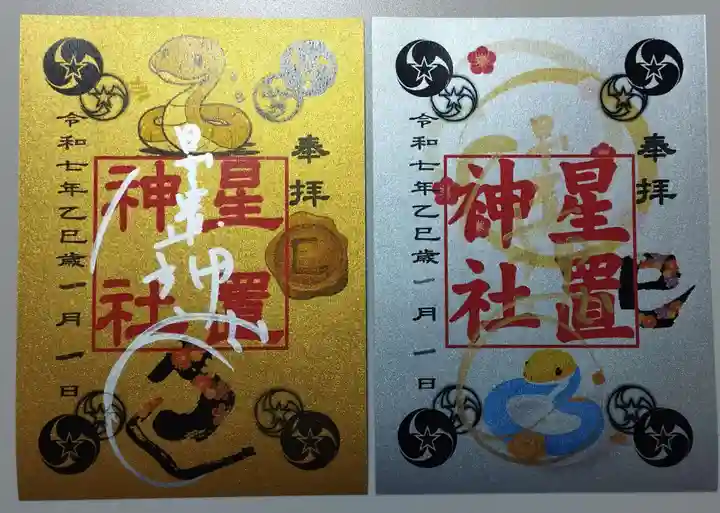 奉拝
星置
神社
星置神社
巳
令和七年乙巳歳一月一日
奉拝
星置
神社
巳
令和七年乙巳歳一月一日